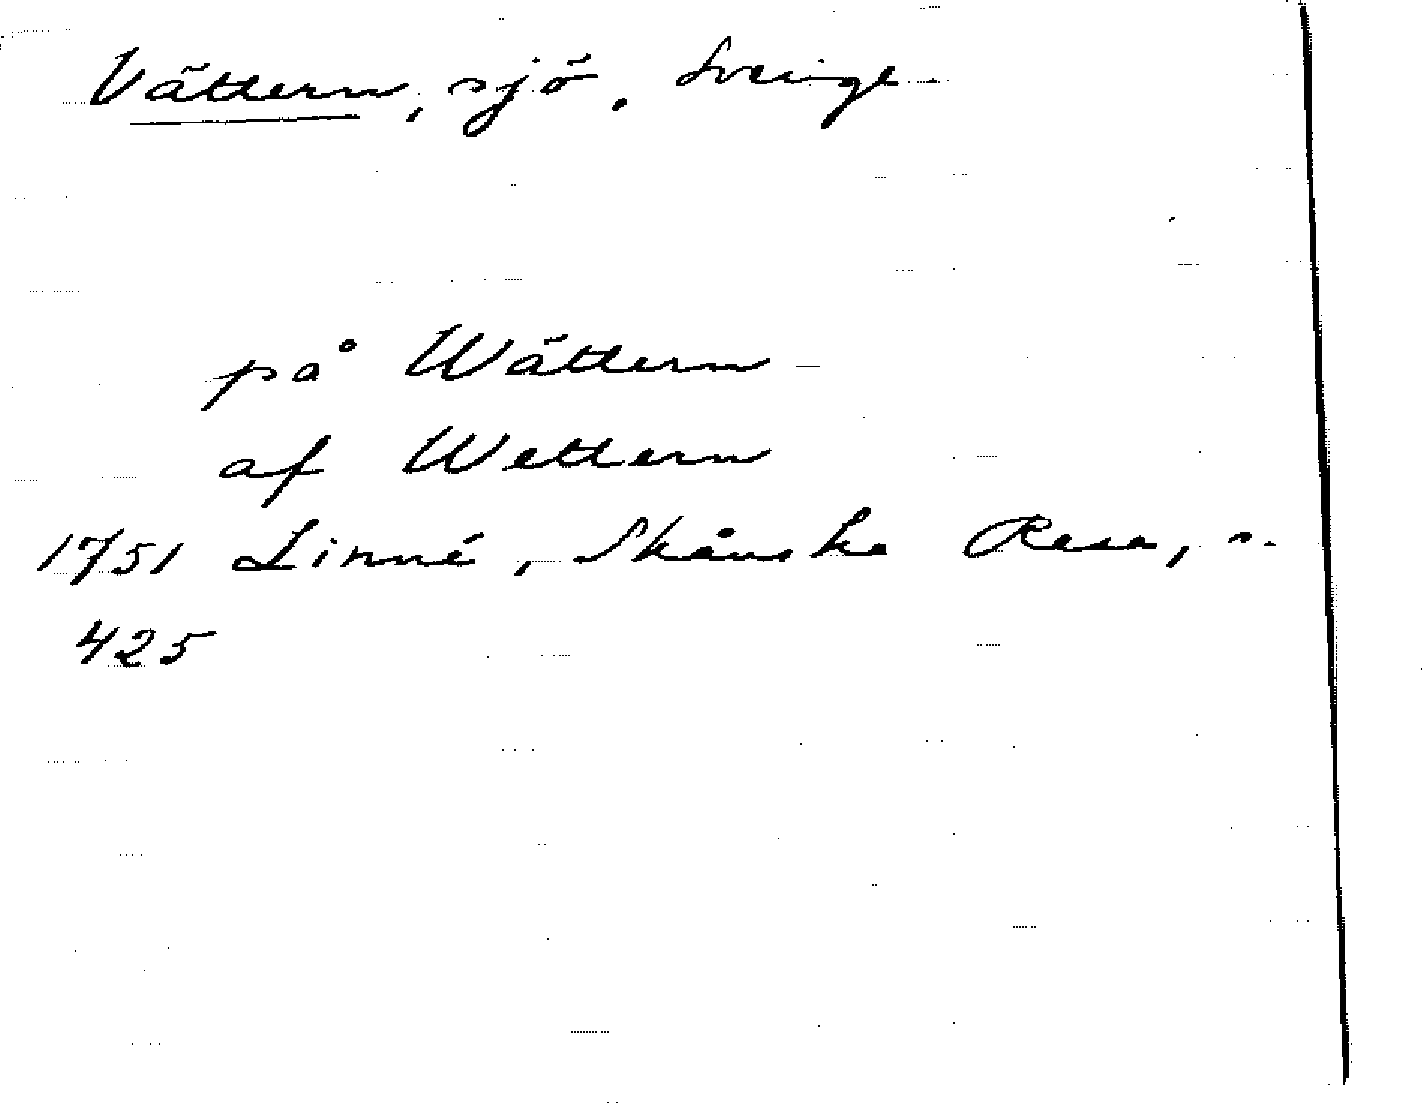 Vättern, sjö, Sverige
på Wättern
af Wettern
1751 Linné, Skånska Resa, s.
425